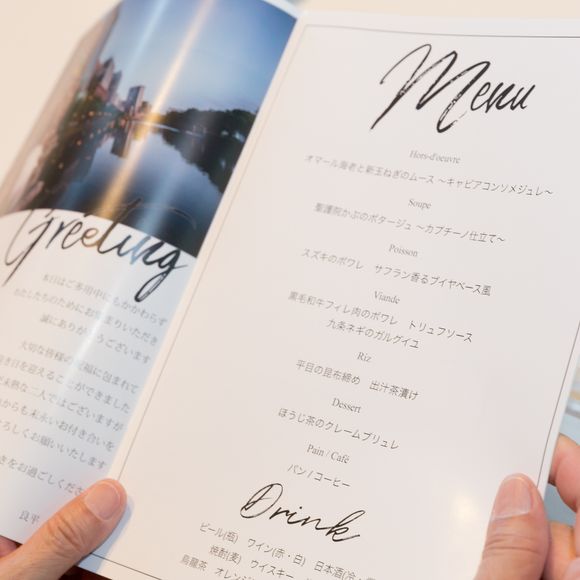 Greeting
本日はご多用中にもかかわらず
わたしたちのためにお集まりいただき
誠にありがとうございます
大切な皆様の 福に包まれて
き日を迎えることができました
未熟な二人ではございますが
からも末永いお付き合いを
ろしくお願いいたします
きをお過ごしくださ
良平
Menu
Hors-d'oeuvre
オマール海老と新玉ねぎのムース ～キャビアコンソメジュレ～
Soupe
聖護院かぶのポタージュ ～カプチーノ仕立て～
Poisson
スズキのポワレ サフラン香るブイヤベース風
Viande
黒毛和牛フィレ肉のポワレ トリュフソース
九条ネギのガルゲイユ
Riz
平目の昆布締め 出汁茶漬け
Dessert
ほうじ茶のクレームブリュレ
Pain / Café
パン / コーヒー
Drink
ビール(瓶) ワイン(赤・白) 日本酒(冷・
焼酎(麦) ウイスキー
烏龍茶 オレンジ